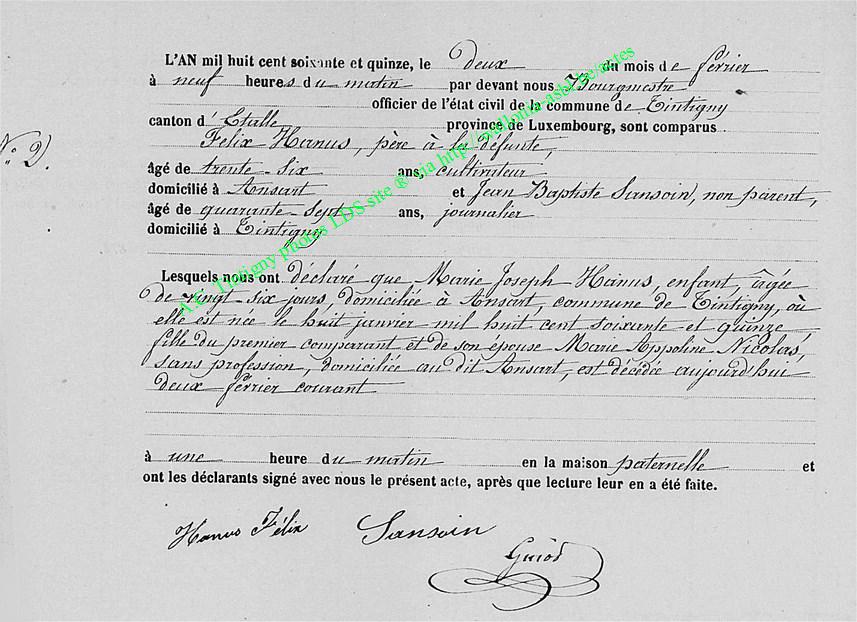 L'AN mil huit cent soixante et quinze, le deux du mois de février
à neuf heures du matin par devant nous Bourgmestre
officier de l'état civil de la commune de Tintigny
canton d'Etalle province de Luxembourg, sont comparus
N° 2).
Felix Hanus, père à la défunte,
âgé de trente-six ans, cultivateur
domicilié à Ansart et Jean Baptiste Sansoin, non parent,
âgé de quarante-sept ans, journalier
domicilié à Tintigny
Lesquels nous ont déclaré que Marie Joseph Hanus, enfant, âgée
de vingt six jours, domiciliée à Ansart, commune de Tintigny, où
elle est née le huit janvier mil huit cent soixante et quinze
fille du premier comparant et de son épouse Marie Appoline Nicolas,
sans profession, domiciliée au dit Ansart, est décédée aujourd'hui
deux février courant
à une heure du matin en la maison paternelle et
ont les déclarants signé avec nous le présent acte, après que lecture leur en a été faite.
Hanus Félix Sansoin
Guiot
A.E. Tintigny photos LDS site ® via http://wallonia-asbl.be/actes